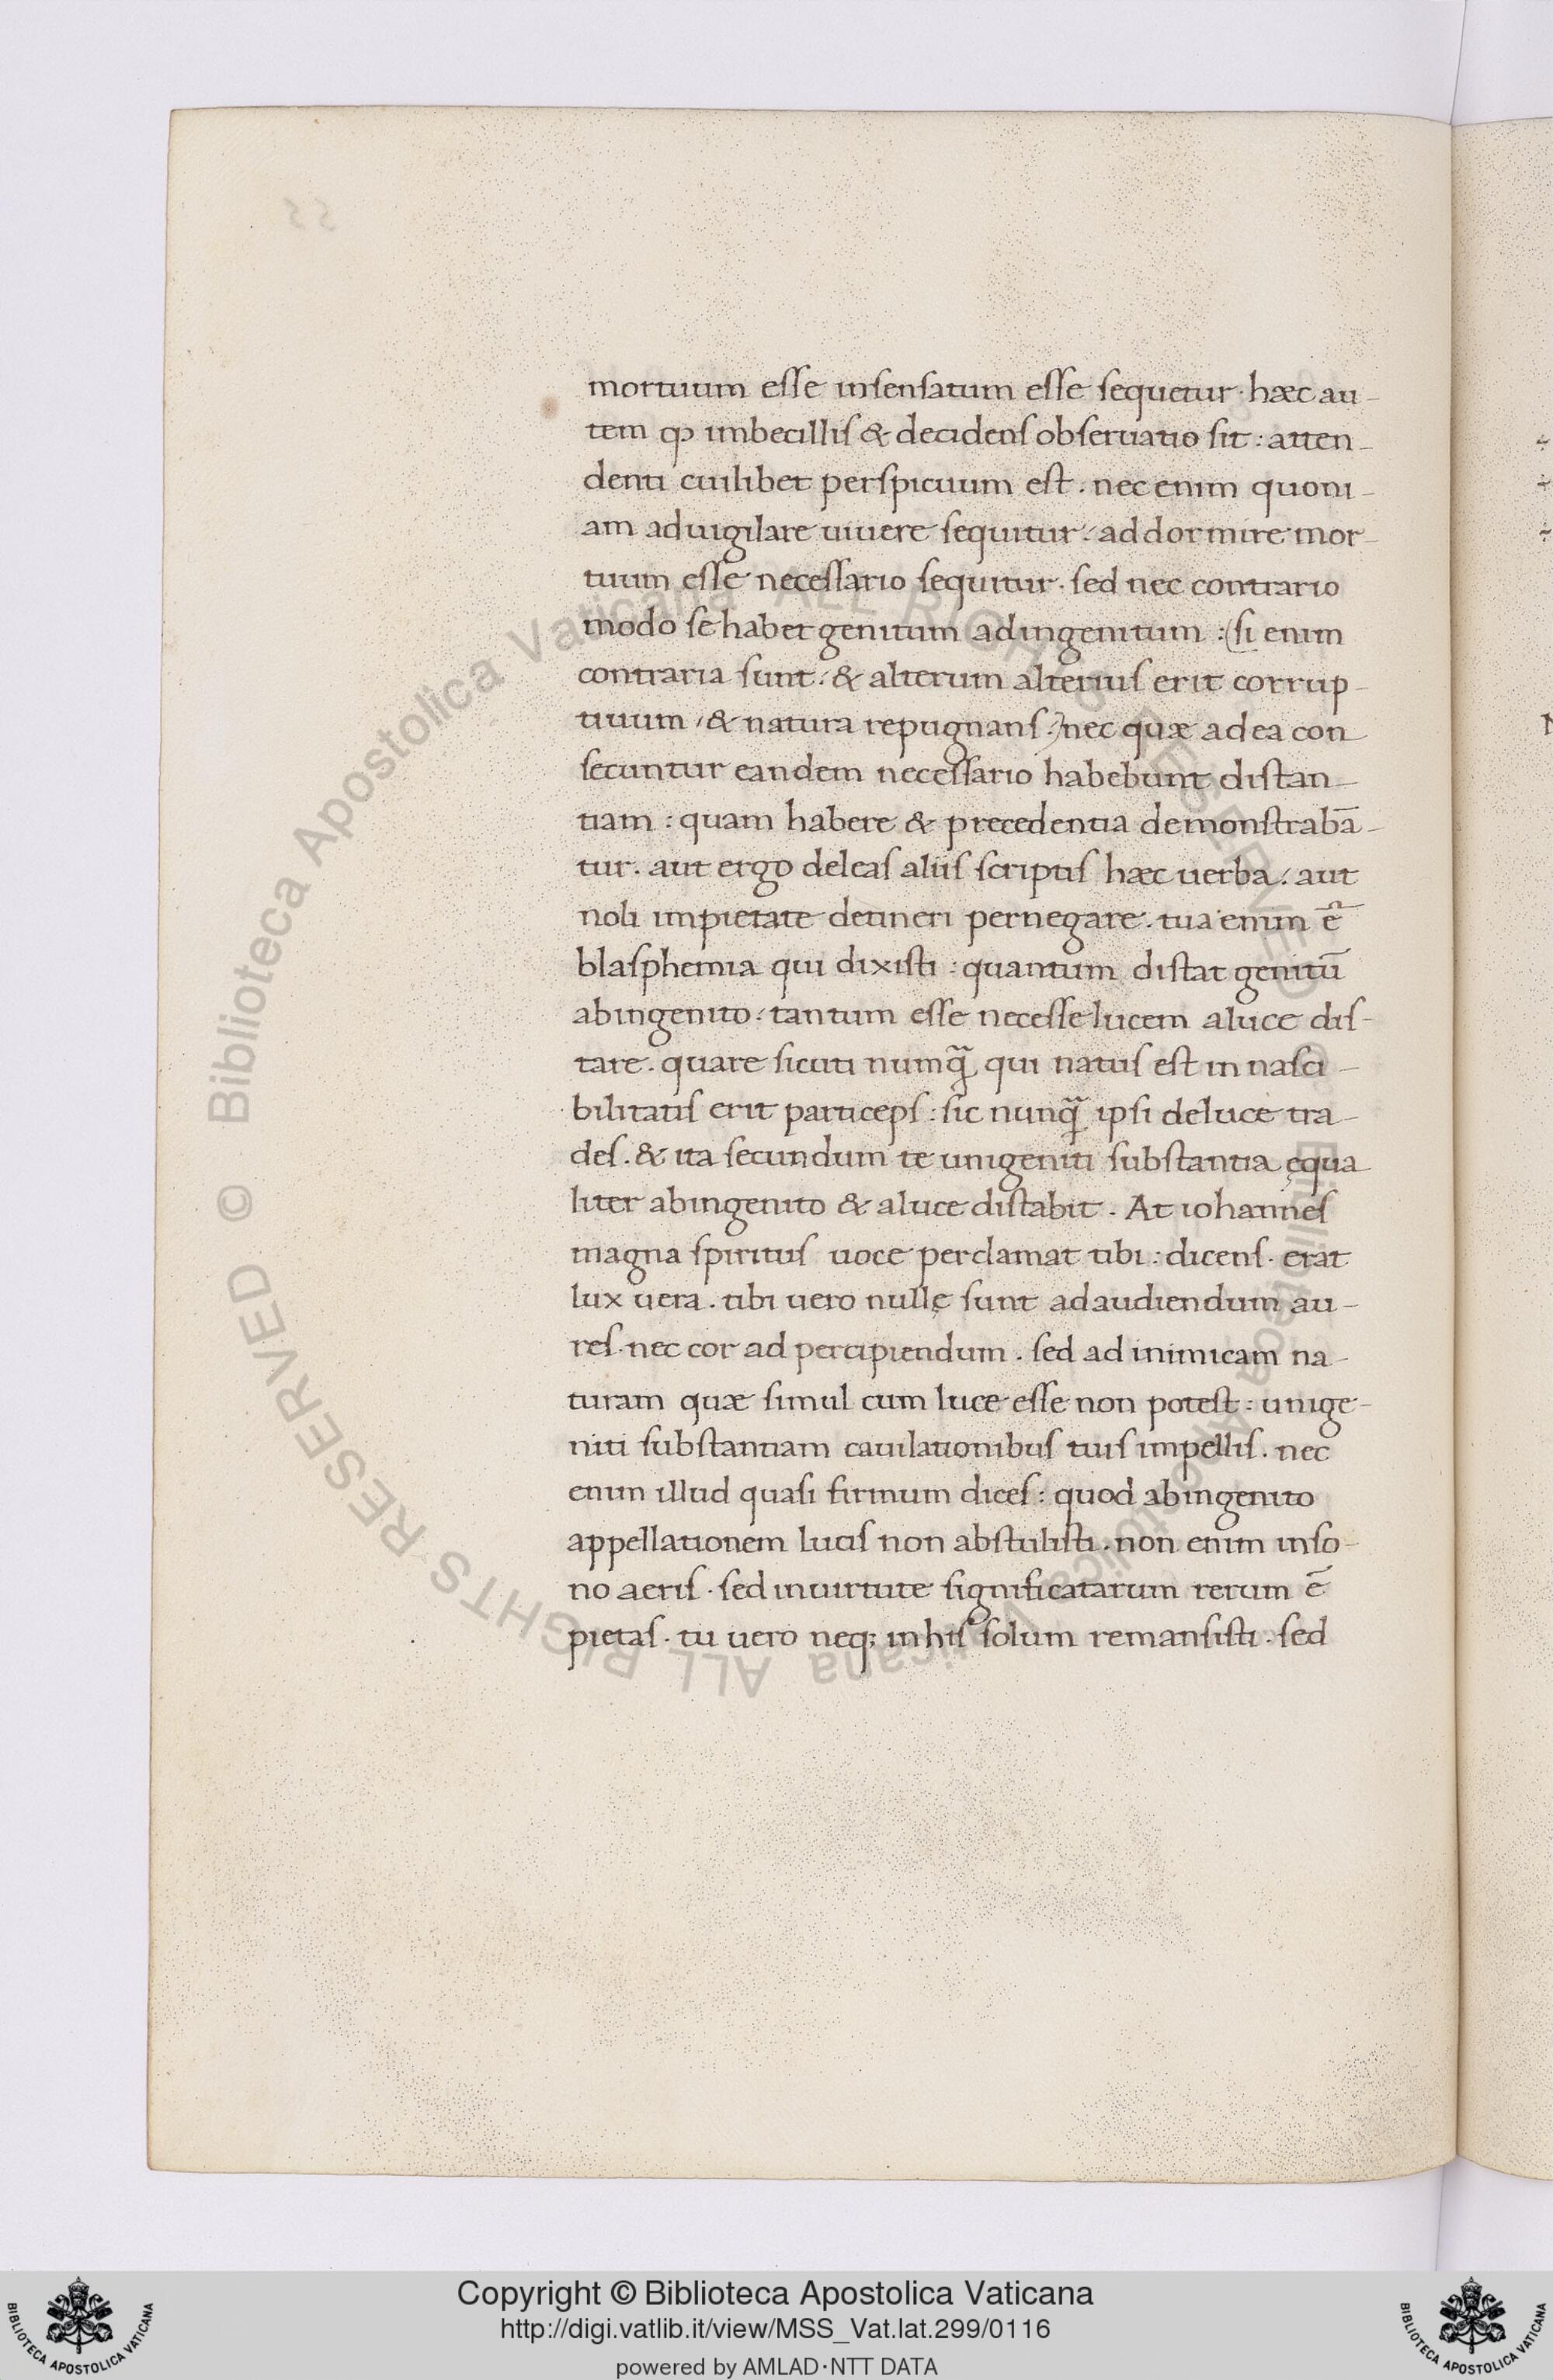 mortuum esse insensatum esse sequetur · hæc au-
tem qꝫ imbecillis & decidens obseruatio sit : atten-
denti cuilibet perspicuum est . nec enim quoni-
am ad uigilare uiuere sequitur :́ ad dormire mor-
tuum esse necessario sequitur · sed nec contrario
modo se habet genitum ad ingenitum : (si enim
contraria sunt :́ & alterum alterius erit corrup-
tiuum / & natura repugnans :) nec quæ ad ea con
secuntur eandem necessario habebunt distan-
tiam : quam habere & precedentia demonstrabā-
tur . aut ergo deleas aliis scriptis hæc uerba :́ aut
noli impietate detineri pernegare . tua enim ē
blasphemia qui dixisti : quantum distat genitū
ab ingenito :́ tantum esse necesse lucem a luce dis-
tare . quare sicuti numq̃ qui natus est in nasci-
bilitatis erit particeps : sic nunq̃ ipsi de luce tra-
des . & ita secundum te unigeniti substantia ęqua
liter ab ingenito & a luce distabit . At iohannes
magna spiritus uoce perclamat tibi : dicens · erat
lux uera . tibi uero nullę sunt ad audiendum au-
res · nec cor ad percipiendum . sed ad inimicam na-
turam quæ simul cum luce esse non potest : unige-
niti substantiam cauilationibus tuis impellis . nec
enim illud quasi firmum dices : quod ab ingenito
appellationem lucis non abstulisti . non enim in so-
no aeris · sed in uirtute significatarum rerum ē
pietas · tu uero neq; in his solum remansisti · sed
Biblioteca Apostolica Vaticana ALL RIGHTS RESERVED ©
Biblioteca Apostolica Vaticana ALL RIGHTS RESERVED ©
Copyright © Biblioteca Apostolica Vaticana
http://digi.vatlib.it/view/MSS_Vat.lat.299/0116
powered by AMLAD·NTT DATA
BIBLIOTECA APOSTOLICA VATICANA
BIBLIOTECA APOSTOLICA VATICANA